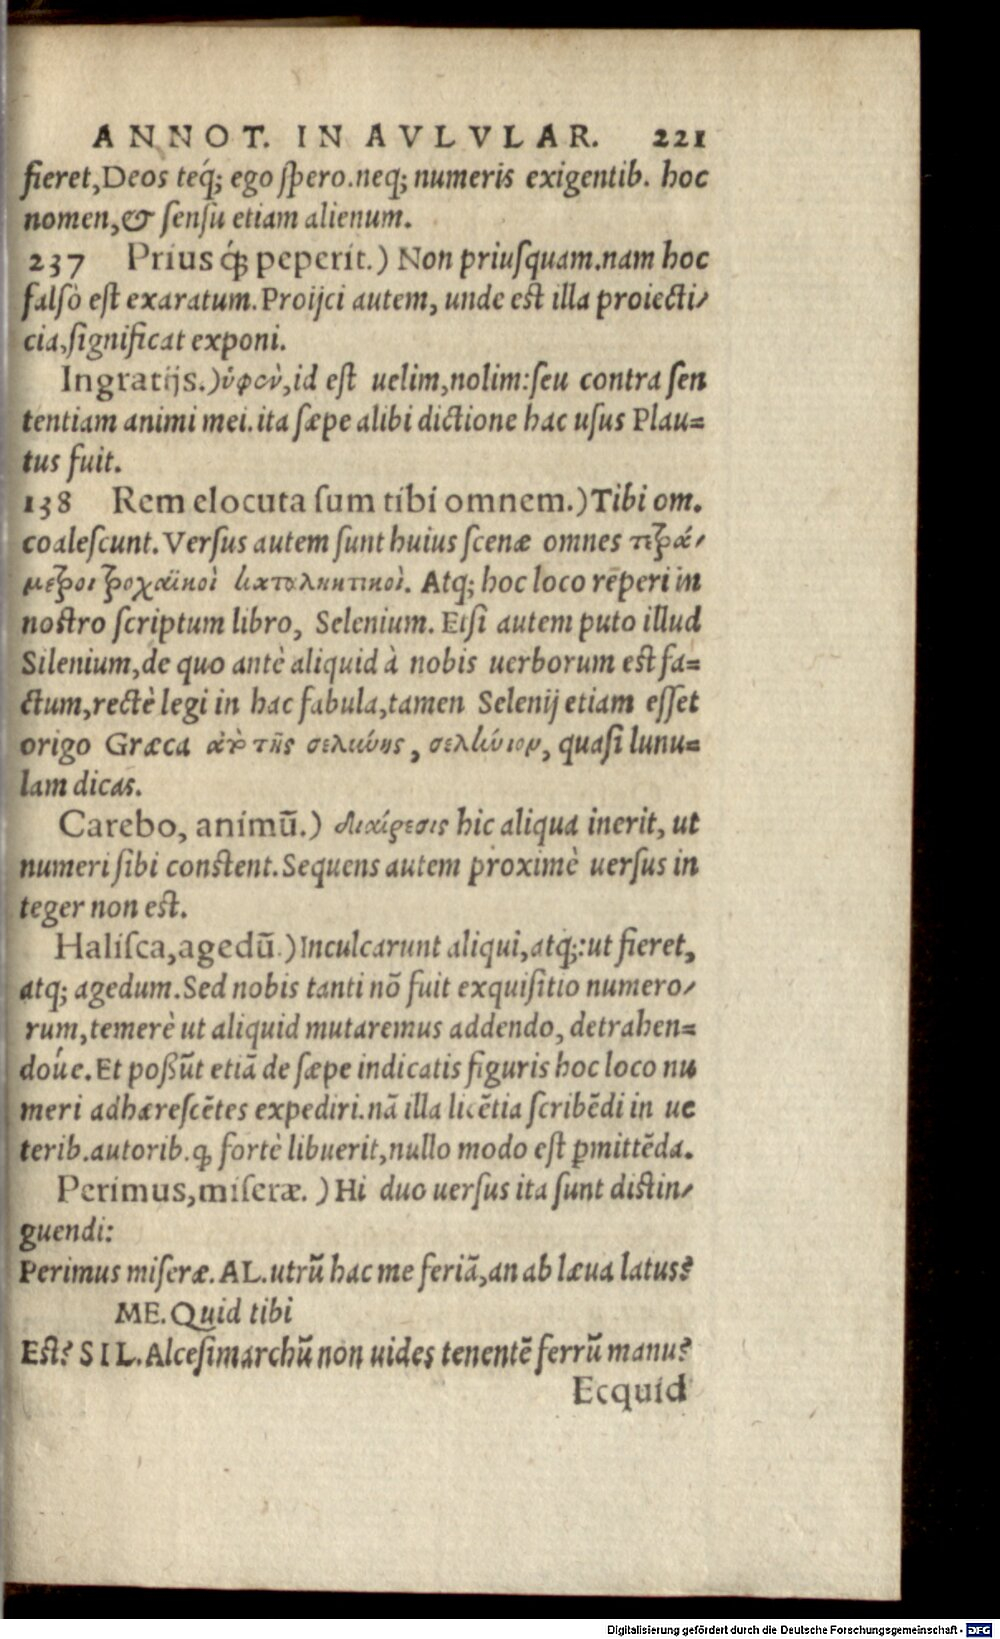 ANNOT. IN AVLVLAR. 221
fieret, Deos teq́; ego ſpero. neq; numeris exigentib. hoc
nomen, & ſenſu etiam alienum.
237 Prius q́ꝫ peperit.) Non priuſquam. nam hoc
falsò eſt exaratum. Proijci autem, unde eſt illa proiecti⸗
cia, ſignificat exponi.
Ingratijs.) ὑφοὺ, id eſt uelim, nolim: ſeu contra ſen
tentiam animi mei. ita ſæpe alibi dictione hac uſus Plau=
tus fuit.
138 Rem elocuta ſum tibi omnem.) Tibi om.
coaleſcunt. Verſus autem ſunt huius ſcenæ omnes τετρά⸗
μετροι τροχαϊκοὶ ἀκαταληκτικοί. Atq; hoc loco reperi in
noſtro ſcriptum libro, Selenium. Etſi autem puto illud
Silenium, de quo antè aliquid à nobis uerborum eſt fa=
ctum, rectè legi in hac fabula, tamen Selenij etiam eſſet
origo Græca ἀπὸ τῆς σελήνης, σελήνιον, quaſi lunu=
lam dicas.
Carebo, animū.) διαίρεσις hic aliqua inerit, ut
numeri ſibi conſtent. Sequens autem proximè uerſus in
teger non eſt.
Haliſca, agedū.) Inculcarunt aliqui, atq;: ut fieret,
atq; agedum. Sed nobis tanti nō fuit exquiſitio numero⸗
rum, temerè ut aliquid mutaremus addendo, detrahen=
doúe. Et poßūt etiā de ſæpe indicatis figuris hoc loco nu
meri adhæreſcētes expediri. nā illa licētia ſcribēdi in ue
terib. autorib. ꝙ fortè libuerit, nullo modo eſt ꝑmittēda.
Perimus, miſeræ.) Hi duo uerſus ita ſunt diſtin⸗
guendi:
Perimus miſeræ. AL. utrū hac me feriā, an ab læua latus?
ME. Quid tibi
Eſt? SIL. Alceſimarchū non uides tenentē ferrū manu?
Ecquid
Digitalisierung gefördert durch die Deutsche Forschungsgemeinschaft - DFG